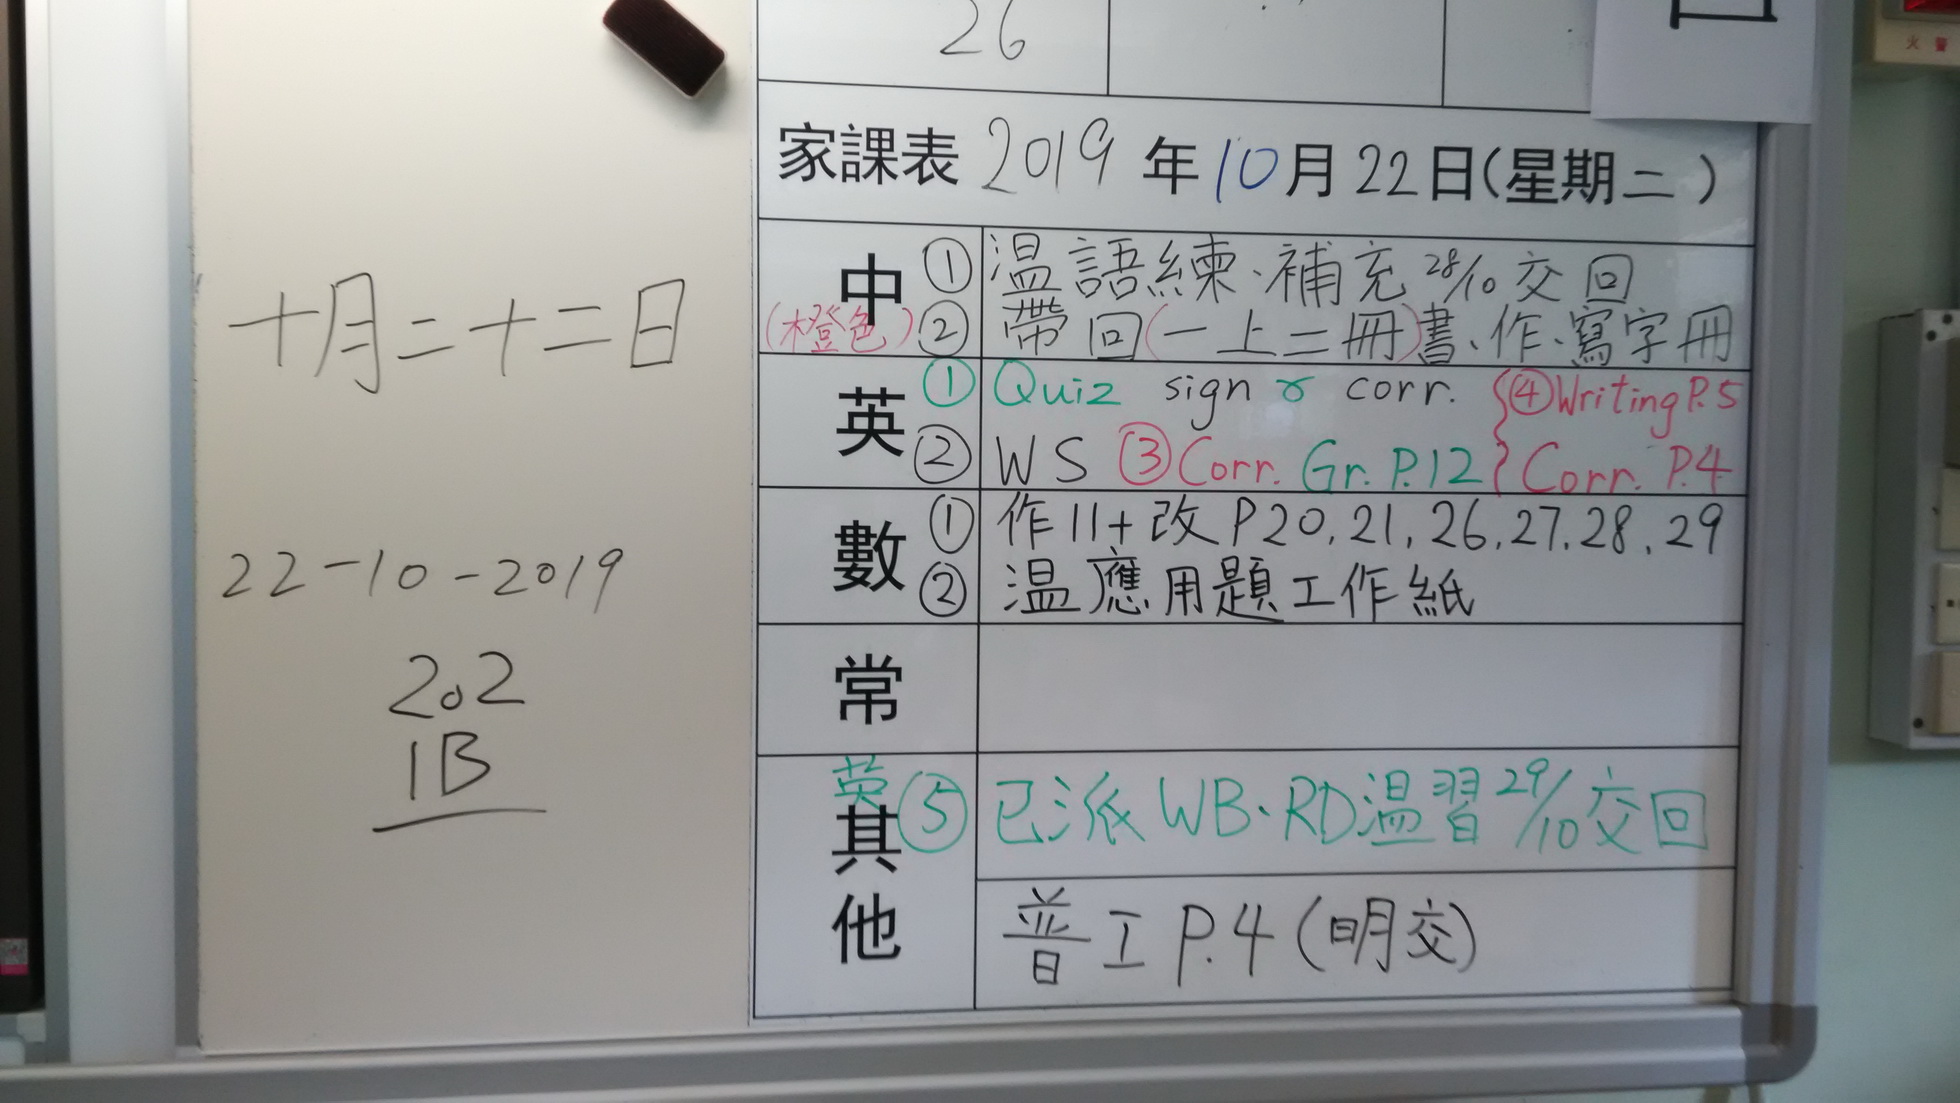 十月二十二日
22-10-2019
202
1B
26
家課表 2019 年 10 月 22 日(星期二)
中 ① 温語練、補充 28/10 交回
(橙色) ② 帶回(一上二冊)書、作、寫字冊
英 ① Quiz sign & corr. ④ Writing P.5
② WS ③ Corr. Gr. P.12 Corr. P.4
數 ① 作11+改 P20, 21, 26, 27, 28, 29
② 温應用題工作紙
常
英 ⑤ 已派 WB、RD温習 29/10 交回
其他
普工 P.4 (明交)
火警